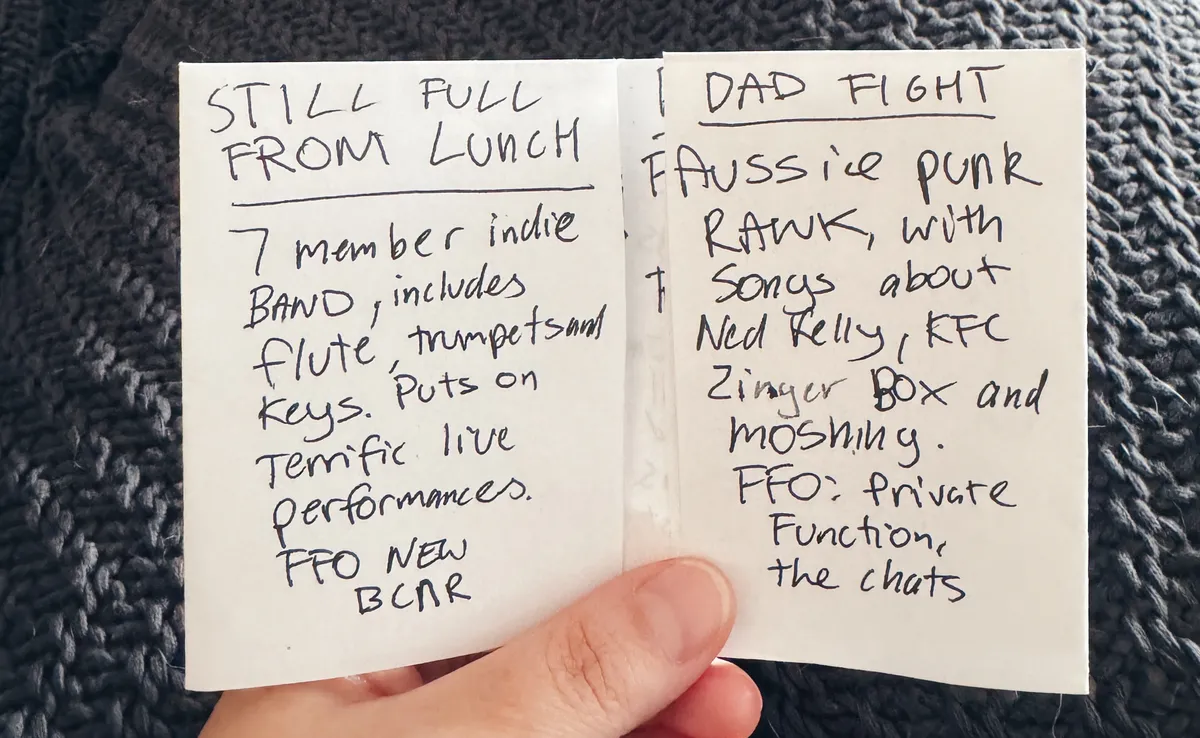 STILL FULL
FROM LUNCH
7 member indie
BAND, includes
flute, trumpets and
keys. Puts on
Terrific live
performances.
FFO NEW
BCNR
DAD FIGHT
Aussie punk
RAWK, with
Songs about
Ned Kelly, KFC
Zinger BOX and
moshing.
FFO: Private
Function,
the chats